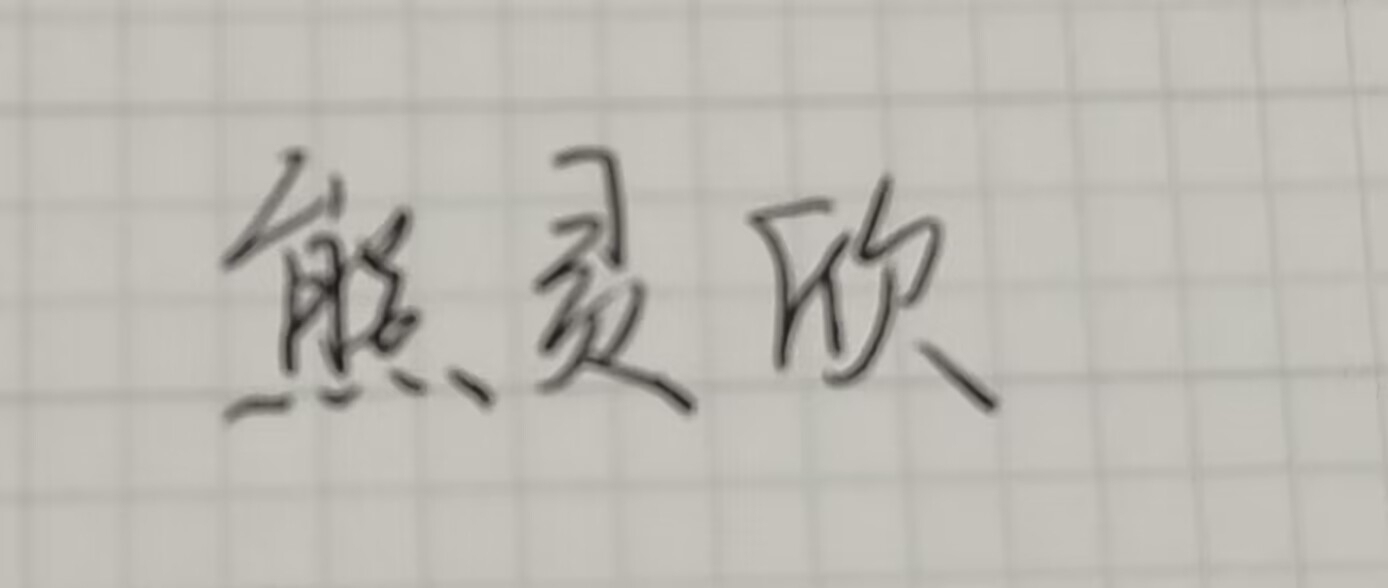 熊灵欣